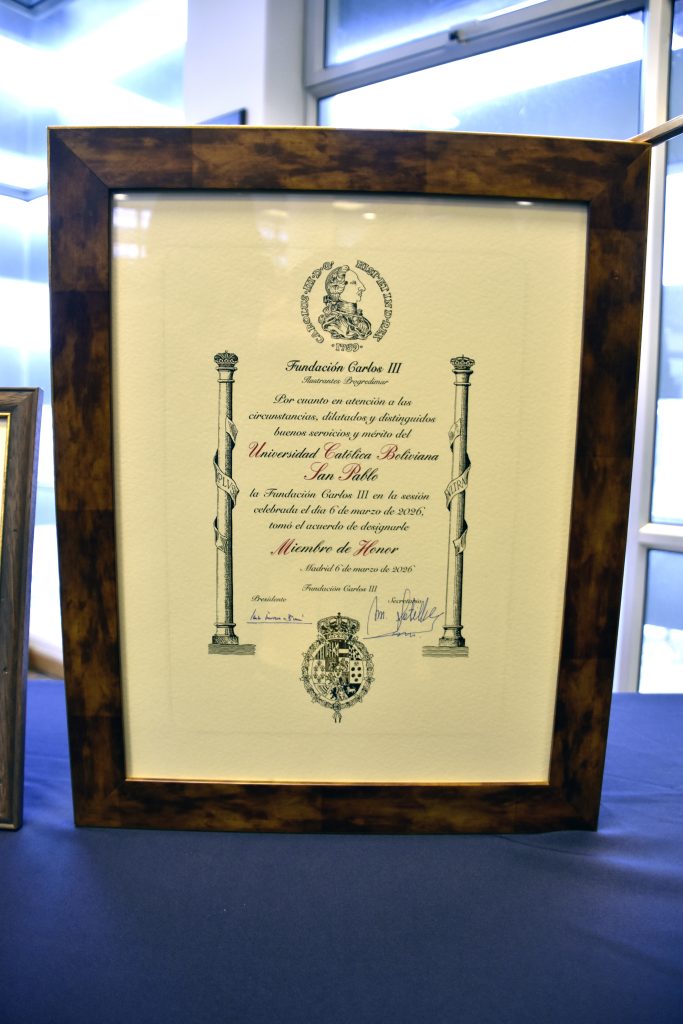 CAROLUS·III·D·G· HISP·ET IND·REX
·1759·
Fundación Carlos III
Ilustrantes Progredimur
Por cuanto en atención a las
circunstancias, dilatados y distinguidos
buenos servicios y mérito del
Universidad Católica Boliviana
San Pablo
la Fundación Carlos III en la sesión
celebrada el día 6 de marzo de 2026,
tomó el acuerdo de designarle
Miembro de Honor
Madrid 6 de marzo de 2026
Fundación Carlos III
Presidente
Secretario
PLVS
VLTRA